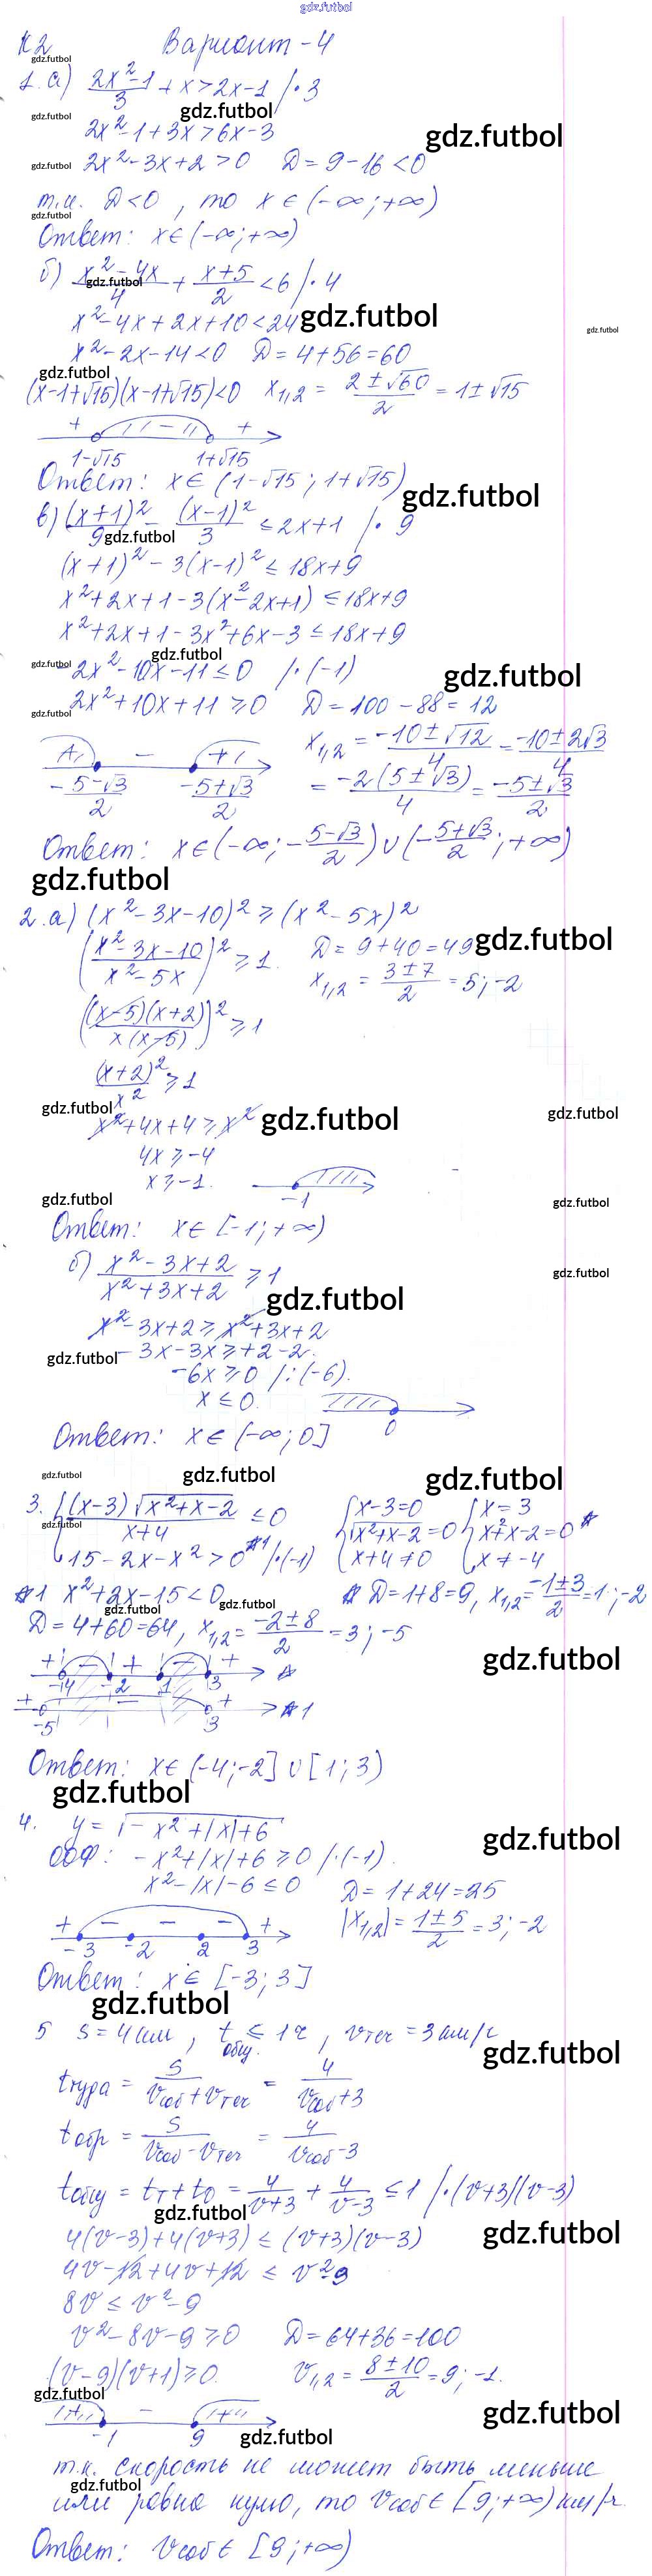 gdz.futbol
К2 Вариант-4
gdz.futbol
1.а) (2x²-1)/3 + x > 2x-1 /·3
gdz.futbol
gdz.futbol
2x²-1+3x>6x-3
gdz.futbol
gdz.futbol
2x²-3x+2>0 Д=9-16<0
т.к. Д<0, то x∈(-∞;+∞)
gdz.futbol
Ответ: x∈(-∞;+∞)
б) (x²-4x)/4 + (x+5)/2 <6 /·4
gdz.futbol
x²-4x+2x+10<24
gdz.futbol
gdz.futbol
x²-2x-14<0 Д=4+56=60
gdz.futbol
(x-1+√15)(x-1+√15)<0 x₁,₂ = (2±√60)/2 = 1±√15
+ - +
1-√15 1+√15
Ответ: x∈(1-√15; 1+√15)
gdz.futbol
в) (x+1)²/9 - (x-1)²/3 ≤2x+1 /·9
gdz.futbol
(x+1)²-3(x-1)²≤18x+9
x²+2x+1-3(x²-2x+1)≤18x+9
x²+2x+1-3x²+6x-3≤18x+9
gdz.futbol
gdz.futbol
-2x²-10x-11≤0 /·(-1)
gdz.futbol
2x²+10x+11≥0 Д=100-88=12
gdz.futbol
x₁,₂ = (-10±√12)/4 = (-10±2√3)/4
+ - +
-(5-√3)/2 (-5+√3)/2
= -2(5±√3)/4 = (-5±√3)/2
Ответ: x∈(-∞; -(5-√3)/2)∪(-(5+√3)/2; +∞)
gdz.futbol
2.а) (x²-3x-10)²≥(x²-5x)²
((x²-3x-10)/(x²-5x))²≥1. Д=9+40=49
gdz.futbol
x₁,₂ = (3±7)/2 = 5;-2
((x-5)(x+2)/x(x-5))²≥1
(x+2)²/x² ≥1
gdz.futbol
x²+4x+4≥x²
gdz.futbol
gdz.futbol
4x≥-4
x≥-1.
-1
gdz.futbol
gdz.futbol
Ответ: x∈[-1;+∞)
б) (x²-3x+2)/(x²+3x+2) ≥1
gdz.futbol
gdz.futbol
x²-3x+2≥x²+3x+2
-3x-3x≥+2-2.
gdz.futbol
-6x≥0 /:(-6).
x≤0.
0
Ответ: x∈(-∞;0]
gdz.futbol
gdz.futbol
gdz.futbol
3. {(x-3)√(x²+x-2)/(x+4) ≤0 {x-3=0 {x=3
gdz.futbol
√(x²+x-2)=0 x²+x-2=0 *
15-2x-x²>0 *1 /·(-1) x+4≠0 x≠-4
*1 x²+2x-15<0 * Д=1+8=9, x₁,₂=(-1±3)/2=1;-2
gdz.futbol
gdz.futbol
Д=4+60=64, x₁,₂ = (-2±8)/2 = 3;-5
gdz.futbol
+ - + - + *
-4 -2 1 3
+ - + *1
-5 3
Ответ: x∈(-4;-2]∪[1;3)
gdz.futbol
4. y=√(-x²+|x|+6)
gdz.futbol
ООФ: -x²+|x|+6≥0 /·(-1).
x²-|x|-6≤0 Д=1+24=25
|x₁,₂| = (1±5)/2 = 3;-2
+ - - - +
-3 -2 2 3
Ответ: x∈[-3;3]
gdz.futbol
5 S=4км, tобщ. ≤ 1ч, vтеч =3км/ч
gdz.futbol
tтура = S/(vсоб+vтеч) = 4/(vсоб+3)
tобр = S/(vсоб-vтеч) = 4/(vсоб-3)
tобщ = tт+tо = 4/(v+3) + 4/(v-3) ≤1 /·(v+3)(v-3)
gdz.futbol
gdz.futbol
4(v-3)+4(v+3)≤(v+3)(v-3)
4v-12+4v+12≤v²-9
8v≤v²-9
v²-8v-9≥0 Д=64+36=100
(v-9)(v+1)≥0. v₁,₂ = (8±10)/2 = 9;-1.
gdz.futbol
gdz.futbol
+ - +
-1 9
gdz.futbol
т.к. скорость не может быть меньше
gdz.futbol
или равна нулю, то vсоб∈[9;+∞)км/ч.
Ответ: vсоб∈[9;+∞)